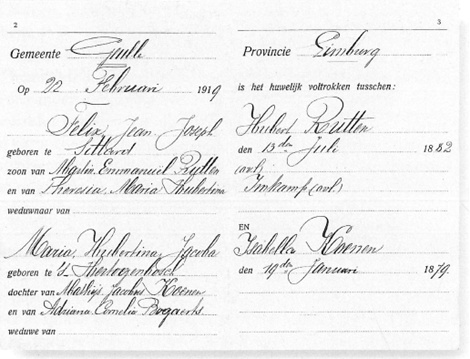 2
Gemeente Gulle
Op 22 Februari 1919
Felix Jean Joseph
geboren te Sittard
zoon van Martin Emmanuel Rutten
en van Theresia Maria Hubertina
weduwnaar van
Maria Hubertina Jacoba
geboren te 's Hertogenbosch
dochter van Mathijs Jacobus Koenen
en van Adriana Cornelia Bogaerts
weduwe van
3
Provincie Limburg
is het huwelijk voltrokken tusschen:
Hubert Rutten
den 13den Juli 1882
(ovl)
Imkamp (ovl)
EN
Isabella Koenen
den 19den Januari 1879.